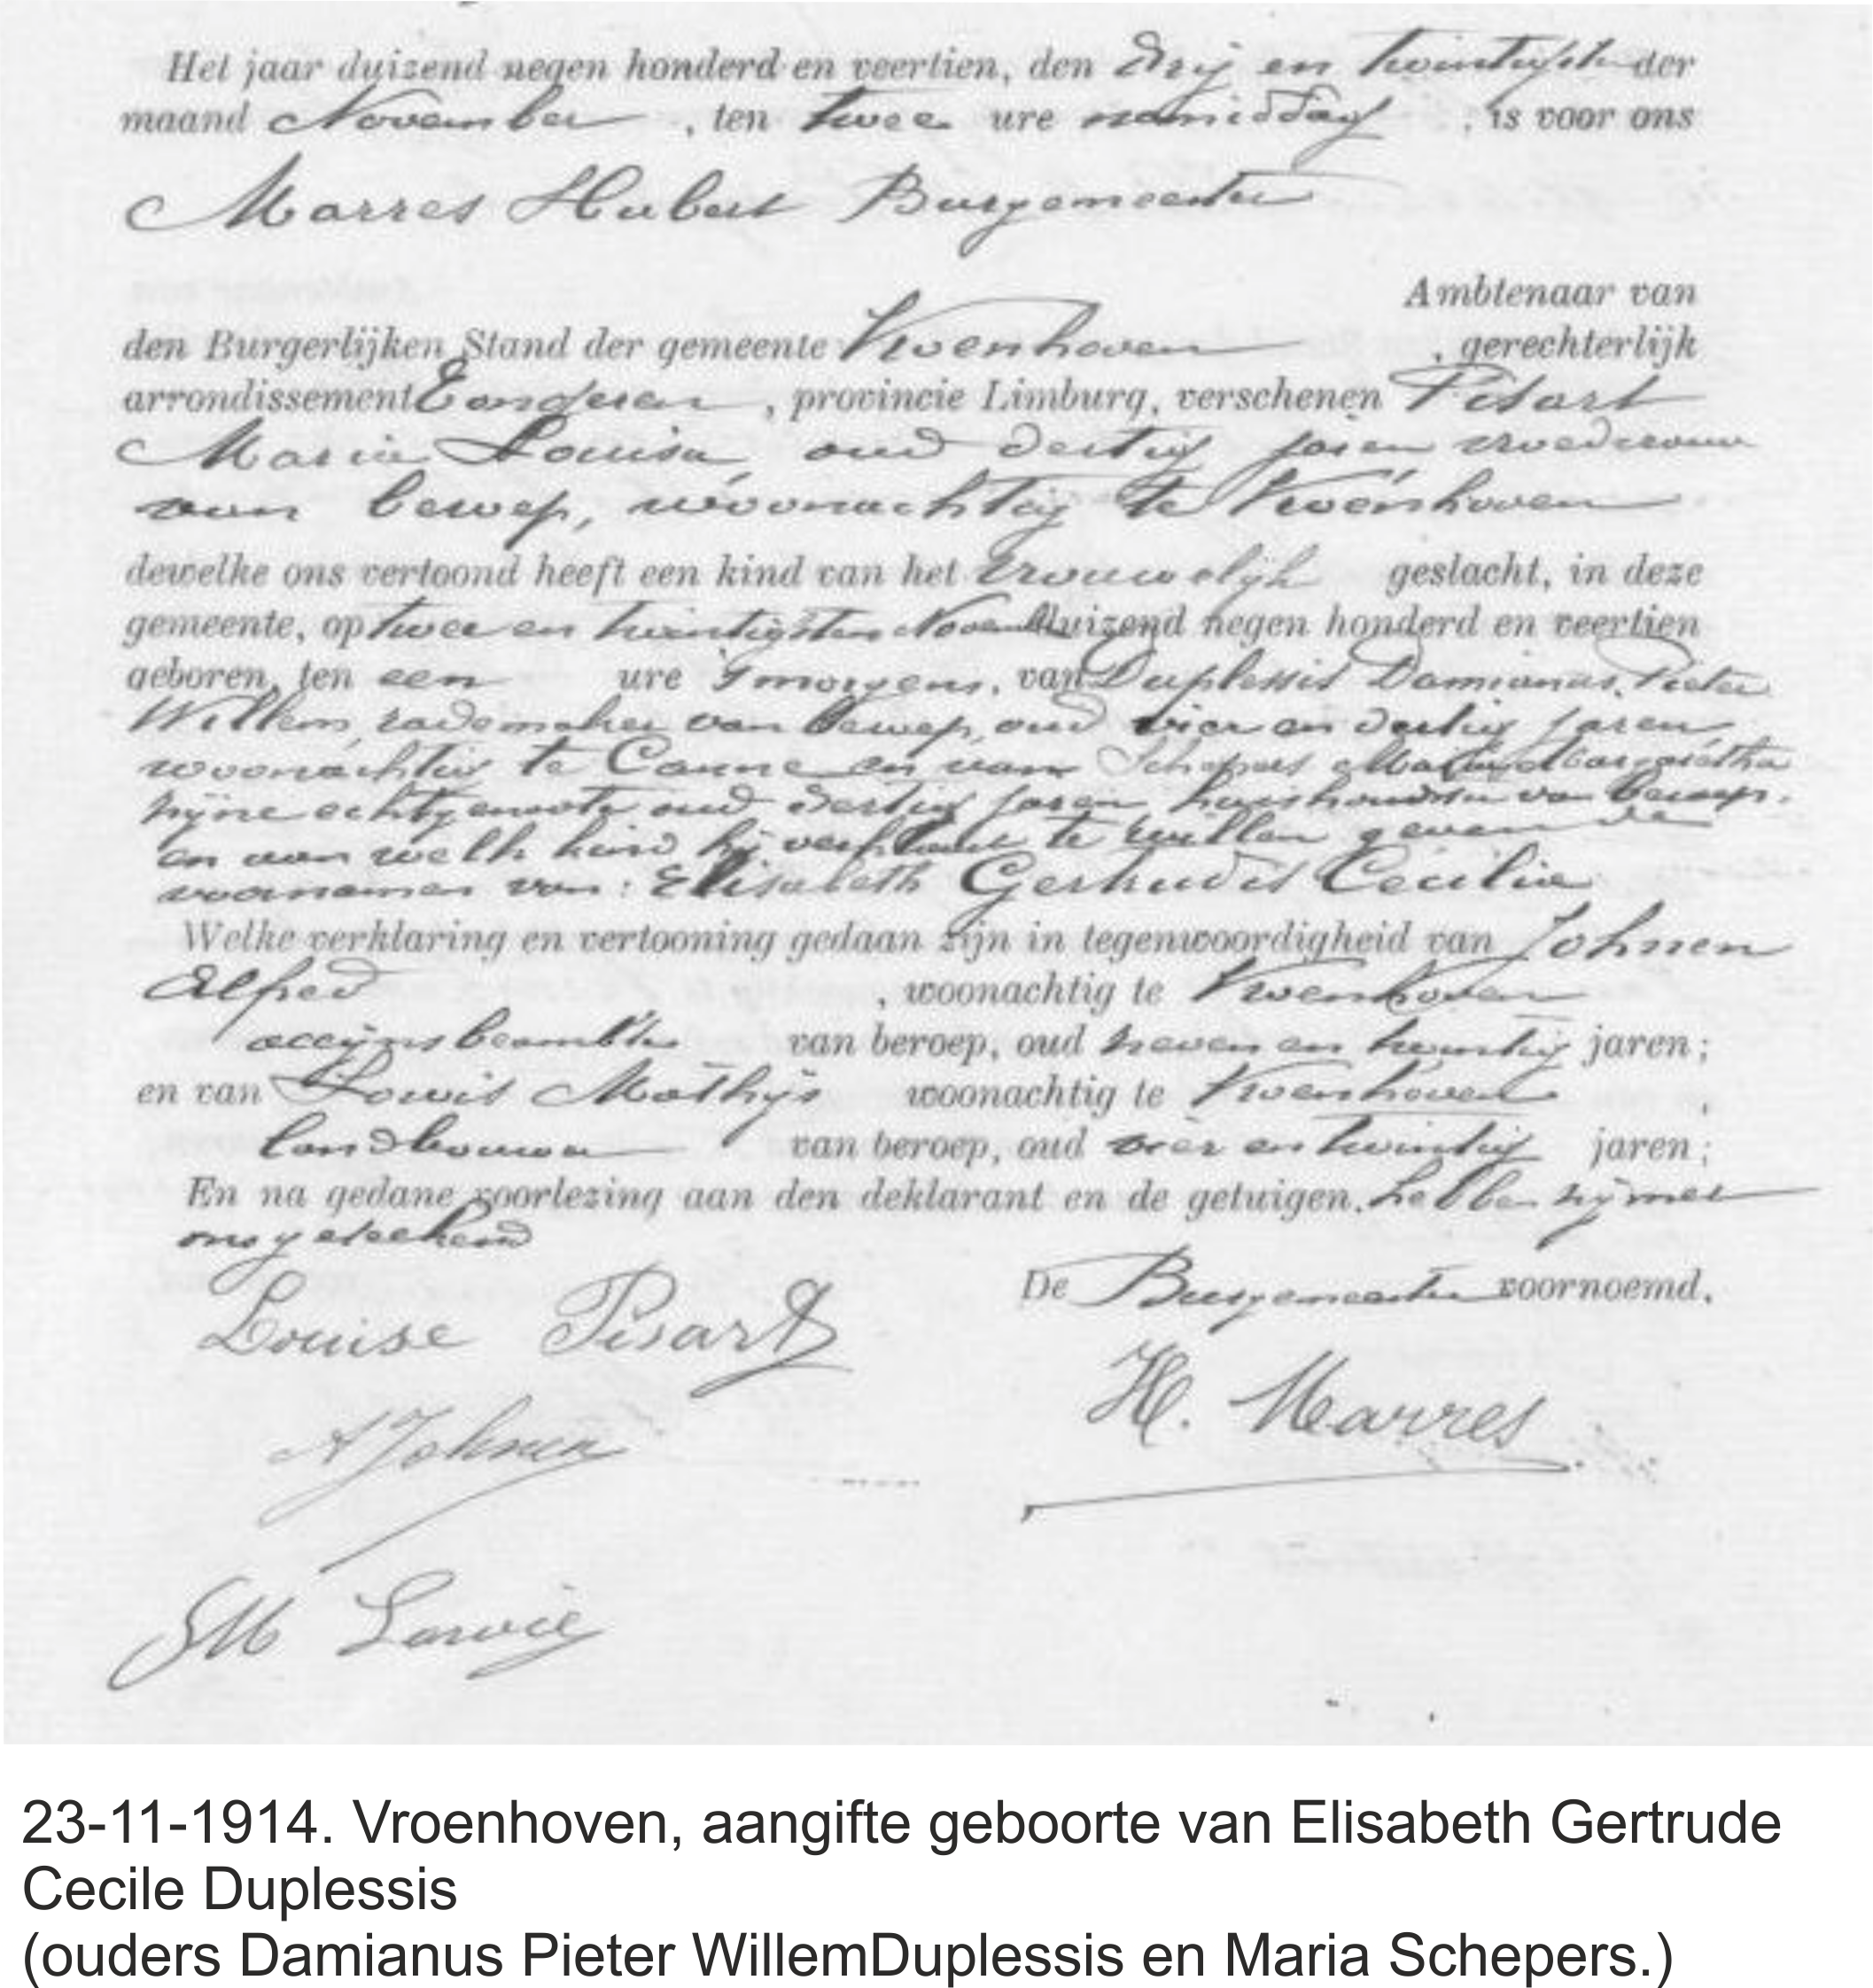 Het jaar duizend negen honderd en veertien, den drij en twintigsten der
maand November, ten twee ure namiddag, is voor ons
Marres Hubert Burgemeester
Ambtenaar van
den Burgerlijken Stand der gemeente Vroenhoven, gerechterlijk
arrondissement Tongeren, provincie Limburg, verschenen Pisart
Maria Louisa, oud dertig jaren vroedvrouw
van beroep, woonachtig te Vroenhoven
dewelke ons vertoond heeft een kind van het vrouwelijk geslacht, in deze
gemeente, op twee en twintigsten November duizend negen honderd en veertien
geboren, ten een ure 's morgens, van Duplessis Damianus, Pieter
Willem, rademaker van beroep, oud vier en dertig jaren
woonachtig te Canne en van Schepers Maria Margaretha
zijne echtgenoote oud dertig jaren huishoudster van beroep.
en aan welk kind hij verklaart te willen geven de
voornamen van: Elisabeth Gertrudis Cecilia
Welke verklaring en vertooning gedaan zijn in tegenwoordigheid van Johnen
Alfred, woonachtig te Vroenhoven
accijnsbeambte van beroep, oud zeven en twintig jaren;
en van Lowis Mathijs woonachtig te Vroenhoven,
landbouwer van beroep, oud vier en twintig jaren;
En na gedane voorlezing aan den deklarant en de getuigen, hebben zij met
ons geteekend
De Burgemeester voornoemd.
Louise Pisart
H. Marres
A Johnen
Lowis
23-11-1914. Vroenhoven, aangifte geboorte van Elisabeth Gertrude
Cecile Duplessis
(ouders Damianus Pieter WillemDuplessis en Maria Schepers.)